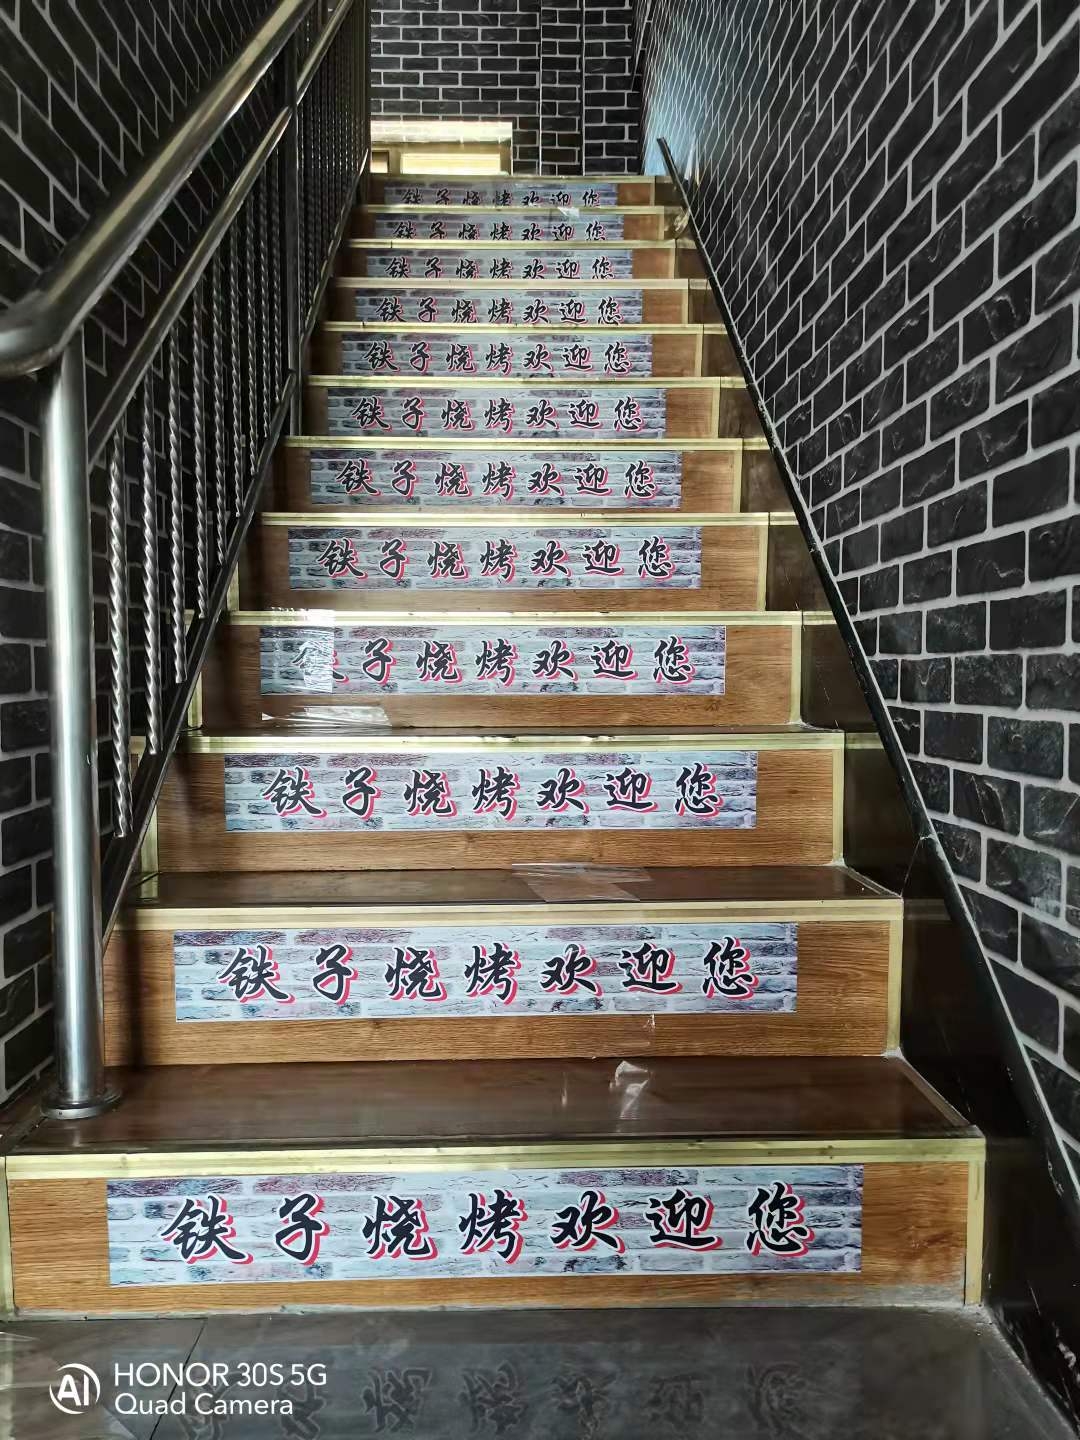 铁子烧烤欢迎您
铁子烧烤欢迎您
铁子烧烤欢迎您
铁子烧烤欢迎您
铁子烧烤欢迎您
铁子烧烤欢迎您
铁子烧烤欢迎您
铁子烧烤欢迎您
铁子烧烤欢迎您
铁子烧烤欢迎您
铁子烧烤欢迎您
铁子烧烤欢迎您
AI HONOR 30S 5G
Quad Camera